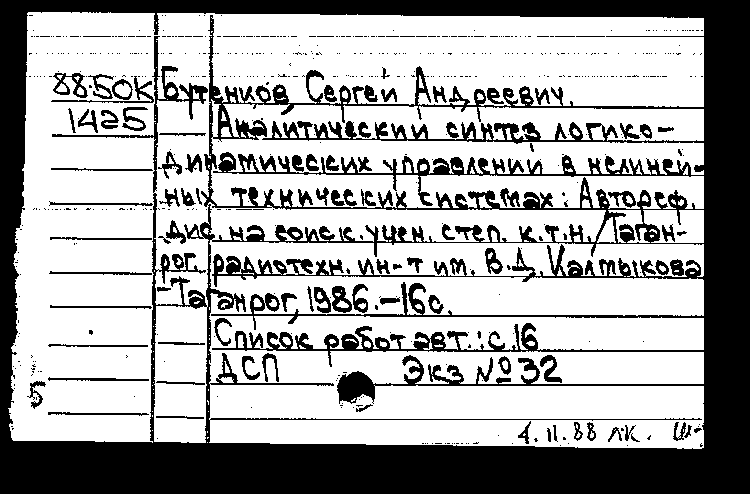 88-50К Бутенков, Сергей Андреевич.
1425 Аналитический синтез логико-
динамических управлений в нелиней-
ных технических системах: Автореф.
дис. на соиск. учен. степ. к.т.н. / Таган-
рог. радиотехн. ин-т им. В.Д. Калмыкова
-Таганрог, 1986.-16с.
Список работ авт.: с.16
ДСП Экз №32
5
4.11.88 лк.